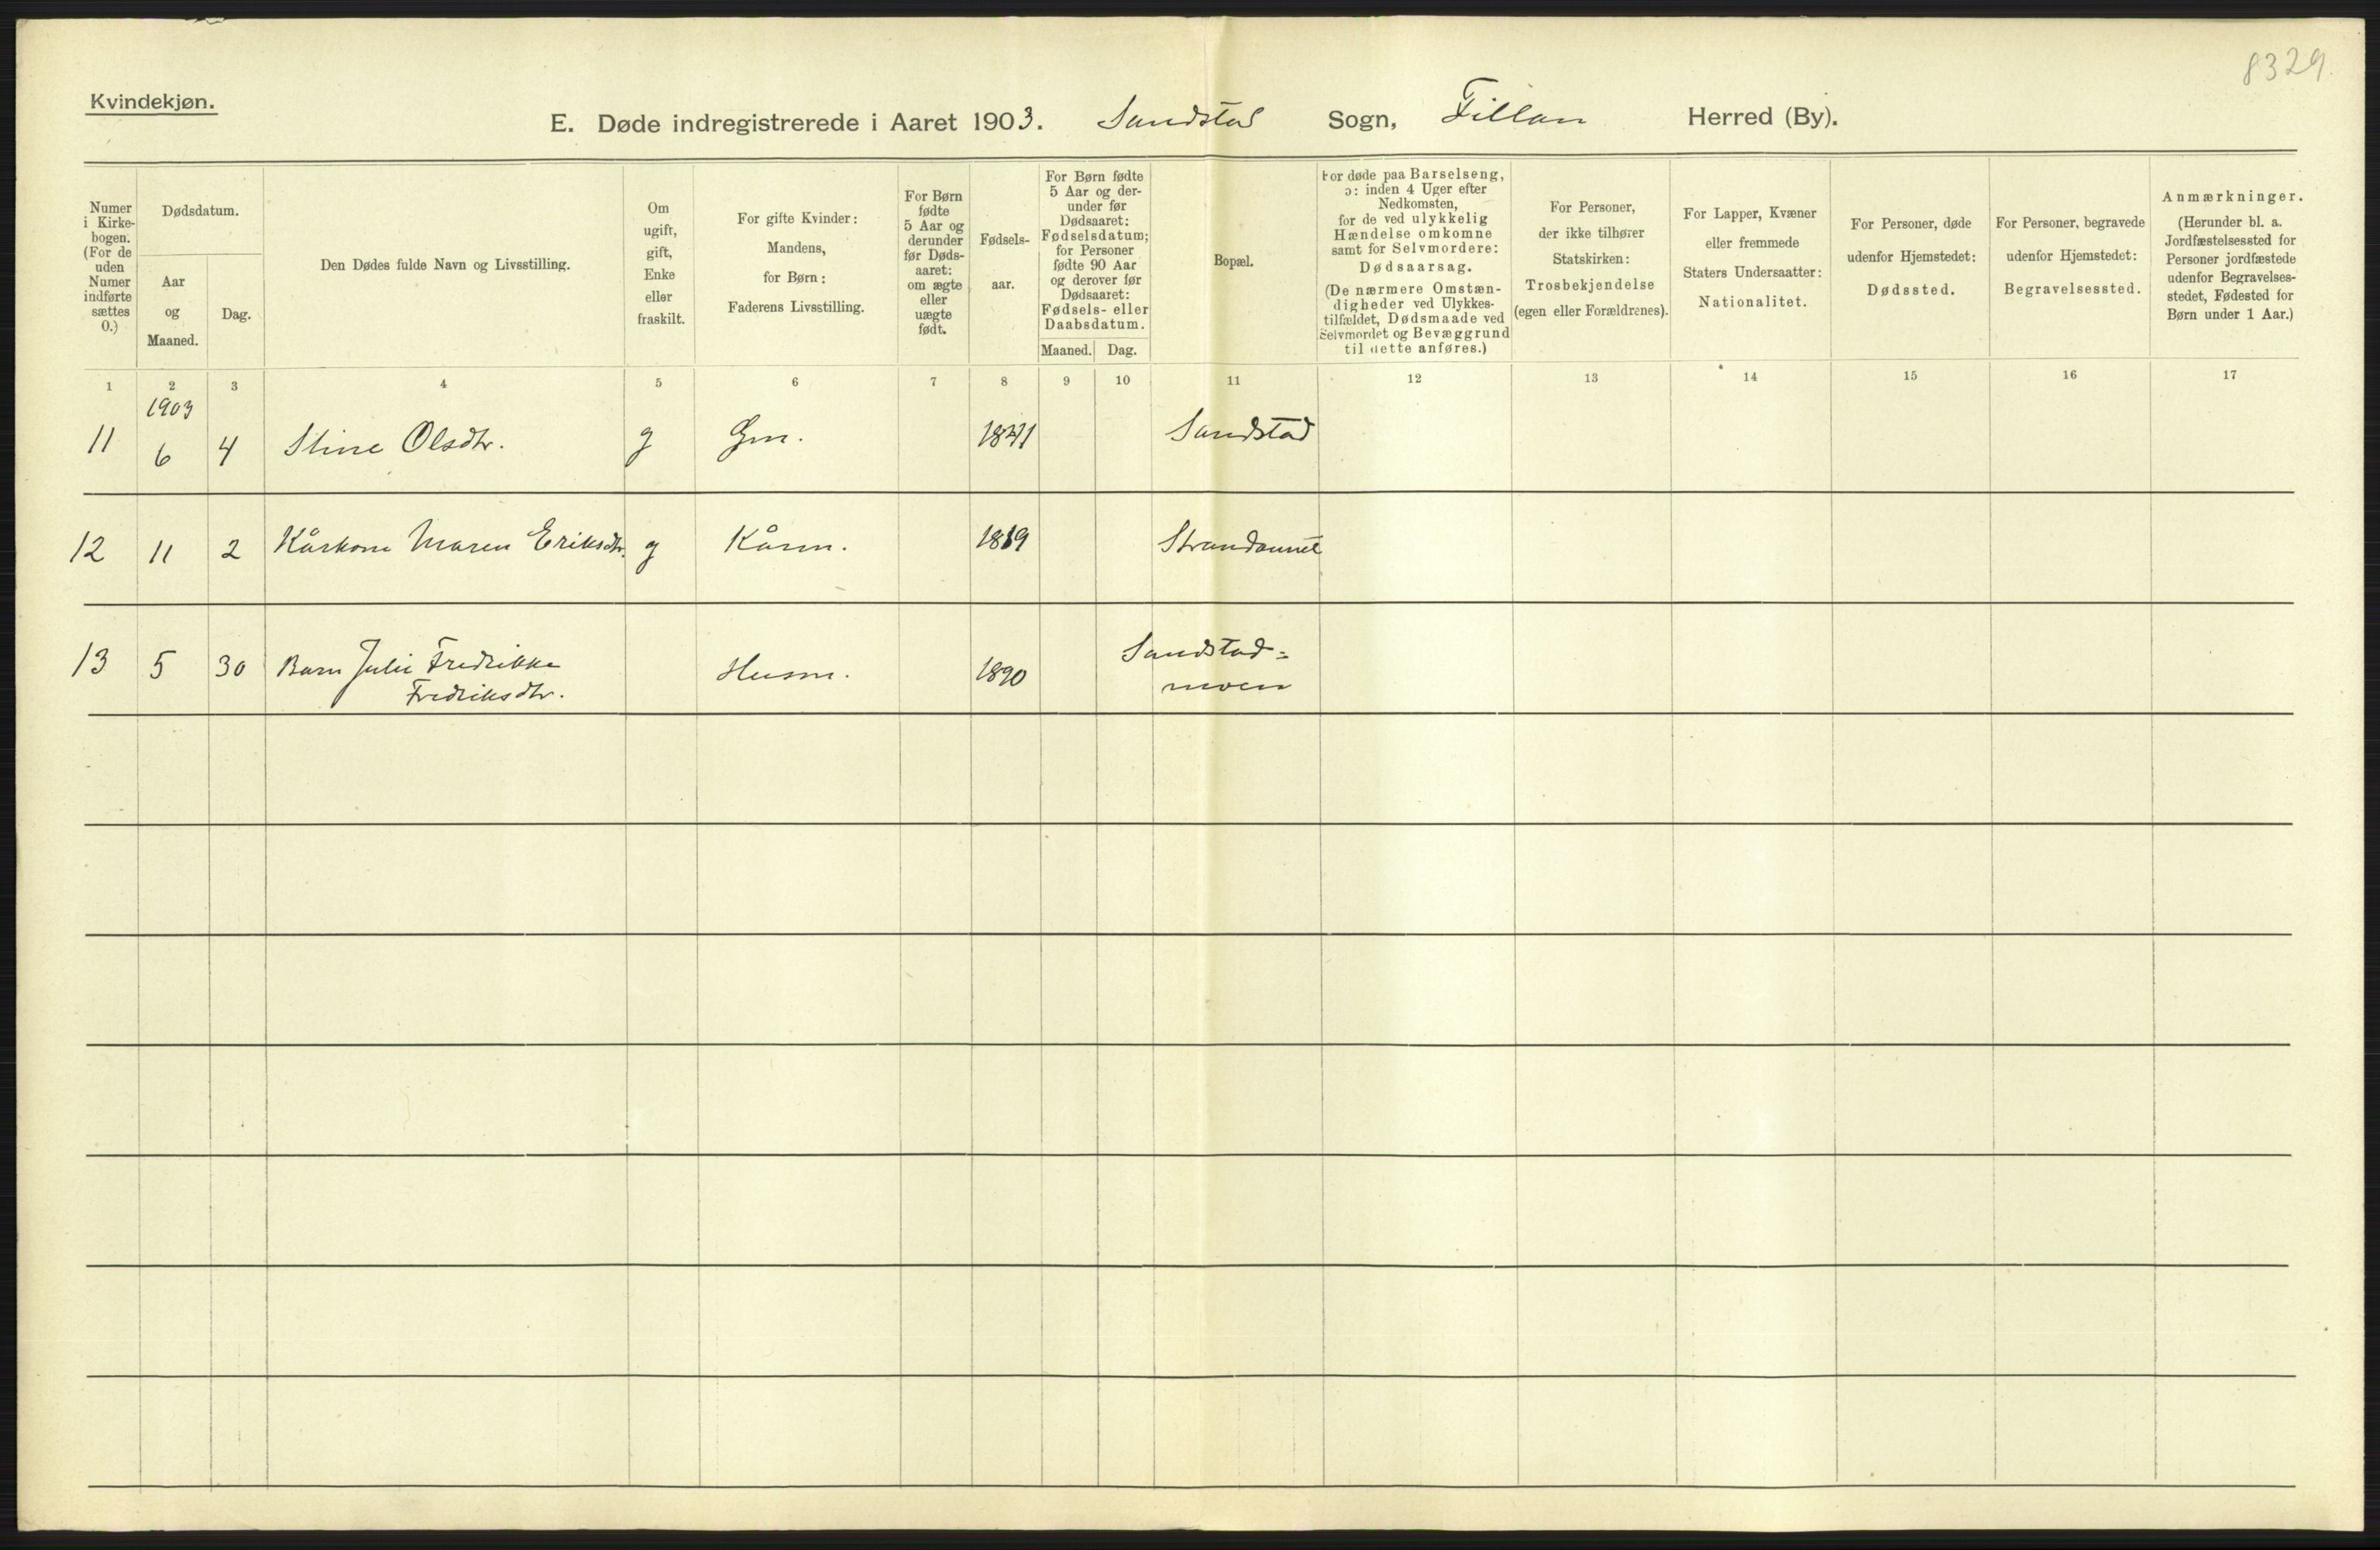 8329.
Kvindekjøn.
E. Døde indregistrerede i Aaret 1903. Sandstad Sogn, Fillan Herred (By).
Numer
i Kirke-
bogen.
(For de
uden
Numer
indførte
sættes
0.)
Dødsdatum.
Aar
og
Maaned.
Dag.
Den Dødes fulde Navn og Livsstilling.
Om
ugift,
gift,
Enke
eller
fraskilt.
For gifte Kvinder:
Mandens,
for Børn:
Faderens Livsstilling.
For Børn
fødte
5 Aar og
derunder
før Døds-
aaret:
om ægte
eller
uægte
født.
Fødsels-
aar.
For Børn fødte
5 Aar og der-
under før
Dødsaaret:
Fødselsdatum;
for Personer
fødte 90 Aar
og derover før
Dødsaaret:
Fødsels- eller
Daabsdatum.
Maaned. Dag.
Bopæl.
For døde paa Barselseng,
ɔ: inden 4 Uger efter
Nedkomsten,
for de ved ulykkelig
Hændelse omkomne
samt for Selvmordere:
Dødsaarsag.
(De nærmere Omstæn-
digheder ved Ulykkes-
tilfældet, Dødsmaade ved
Selvmordet og Bevæggrund
til dette anføres.)
For Personer,
der ikke tilhører
Statskirken:
Trosbekjendelse
(egen eller Forældrenes).
For Lapper, Kvæner
eller fremmede
Staters Undersaatter:
Nationalitet.
For Personer, døde
udenfor Hjemstedet:
Dødssted.
For Personer, begravede
udenfor Hjemstedet:
Begravelsessted.
Anmærkninger.
(Herunder bl. a.
Jordfæstelsessted for
Personer jordfæstede
udenfor Begravelses-
stedet, Fødested for
Børn under 1 Aar.)
1 2 3 4 5 6 7 8 9 10 11 12 13 14 15 16 17
1903
11 6 4 Stine Olsdtr. g Gm. Sandstad
12 11 2 Kårkone Maren Eriksdtr. g Kårm. 1819
13 5 30 Barn Julie Fredrikke Husm. 1890 Sandstad=
Fredriksdtr. moen